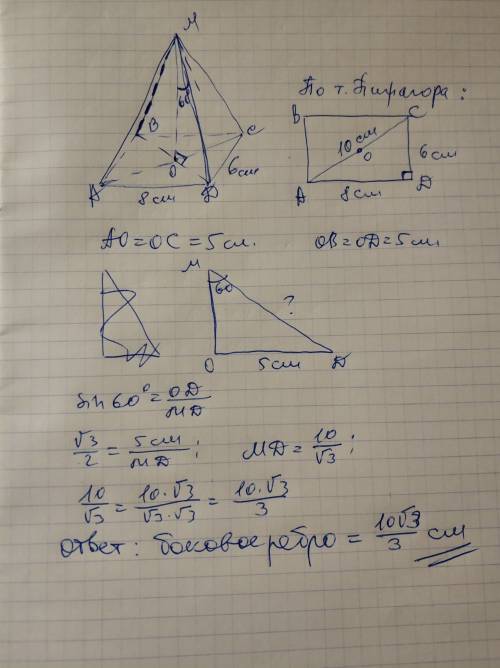 M
60
B
C
O
6см
A
8см
D
По т. Пифагора:
B
C
10см
O
6см
A
8см
D
AO=OC=5см.
OB=OD=5см
M
60
?
O
5см
D
Sin 60°=OD/MD
√3/2=5см/MD;
MD=10/√3;
10/√3=10·√3/√3·√3=10·√3/3
ответ: боковое ребро=10√3/3 см